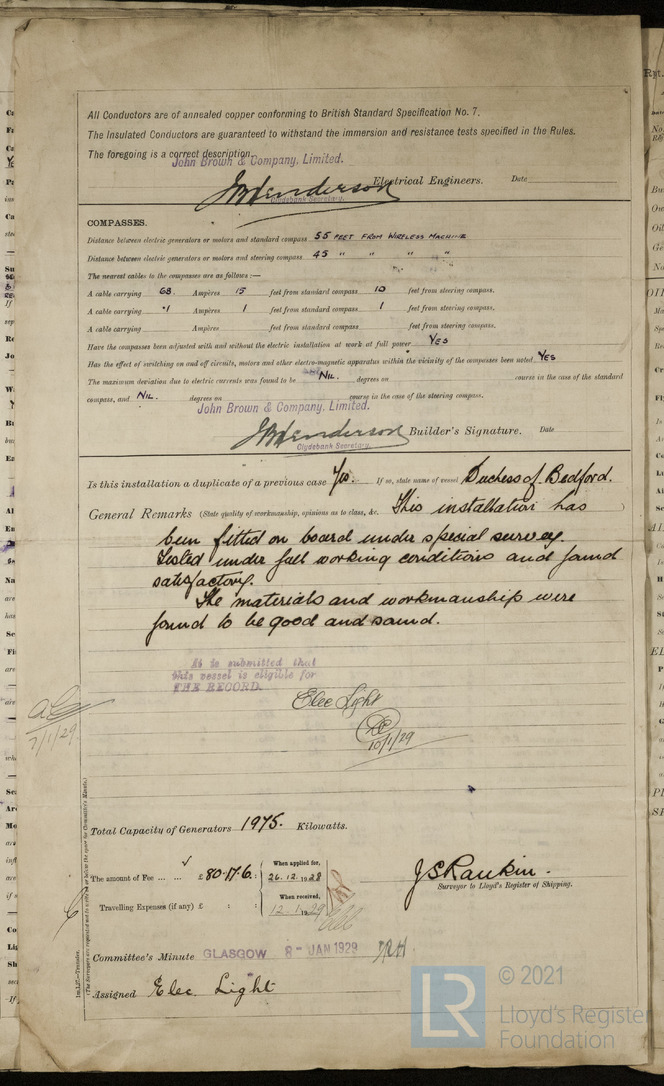 All Conductors are of annealed copper conforming to British Standard Specification No. 7.
The Insulated Conductors are guaranteed to withstand the immersion and resistance tests specified in the Rules.
The foregoing is a correct description.
John Brown & Company, Limited.
JBHenderson Electrical Engineers. Date
Clydebank Secretary.
COMPASSES.
Distance between electric generators or motors and standard compass 55 FEET FROM WIRELESS MACHINE
Distance between electric generators or motors and steering compass 45 " " " "
The nearest cables to the compasses are as follows:—
A cable carrying 68. Ampères 15 feet from standard compass 10 feet from steering compass.
A cable carrying ·1 Ampères 1 feet from standard compass 1 feet from steering compass.
A cable carrying Ampères feet from standard compass feet from steering compass.
Have the compasses been adjusted with and without the electric installation at work at full power YES
Has the effect of switching on and off circuits, motors and other electro-magnetic apparatus within the vicinity of the compasses been noted YES
The maximum deviation due to electric currents was found to be NIL. degrees on course in the case of the standard
compass, and NIL. degrees on course in the case of the steering compass.
John Brown & Company, Limited.
JBHenderson Builder's Signature. Date
Clydebank Secretary.
Is this installation a duplicate of a previous case Yes. If so, state name of vessel Duchess of Bedford.
General Remarks (State quality of workmanship, opinions as to class, &c. This installation has )
been fitted on board under special survey.
Tested under full working conditions and found
satisfactory.
The materials and workmanship were
found to be good and sound.
It is submitted that
this vessel is eligible for
THE RECORD.
Elec Light
10/1/29
7/1/29.
Total Capacity of Generators 1975. Kilowatts.
The amount of Fee ... ... £ 80.17.6 :
When applied for,
26.12.1928
When received,
Travelling Expenses (if any) £ : :
12.1.1929
JS Rankin.
Surveyor to Lloyd's Register of Shipping.
Committee's Minute GLASGOW 8 - JAN 1929
Assigned Elec. Light
1m.1.27.—Transfer.
© 2021
LR
Lloyd's Register
Foundation